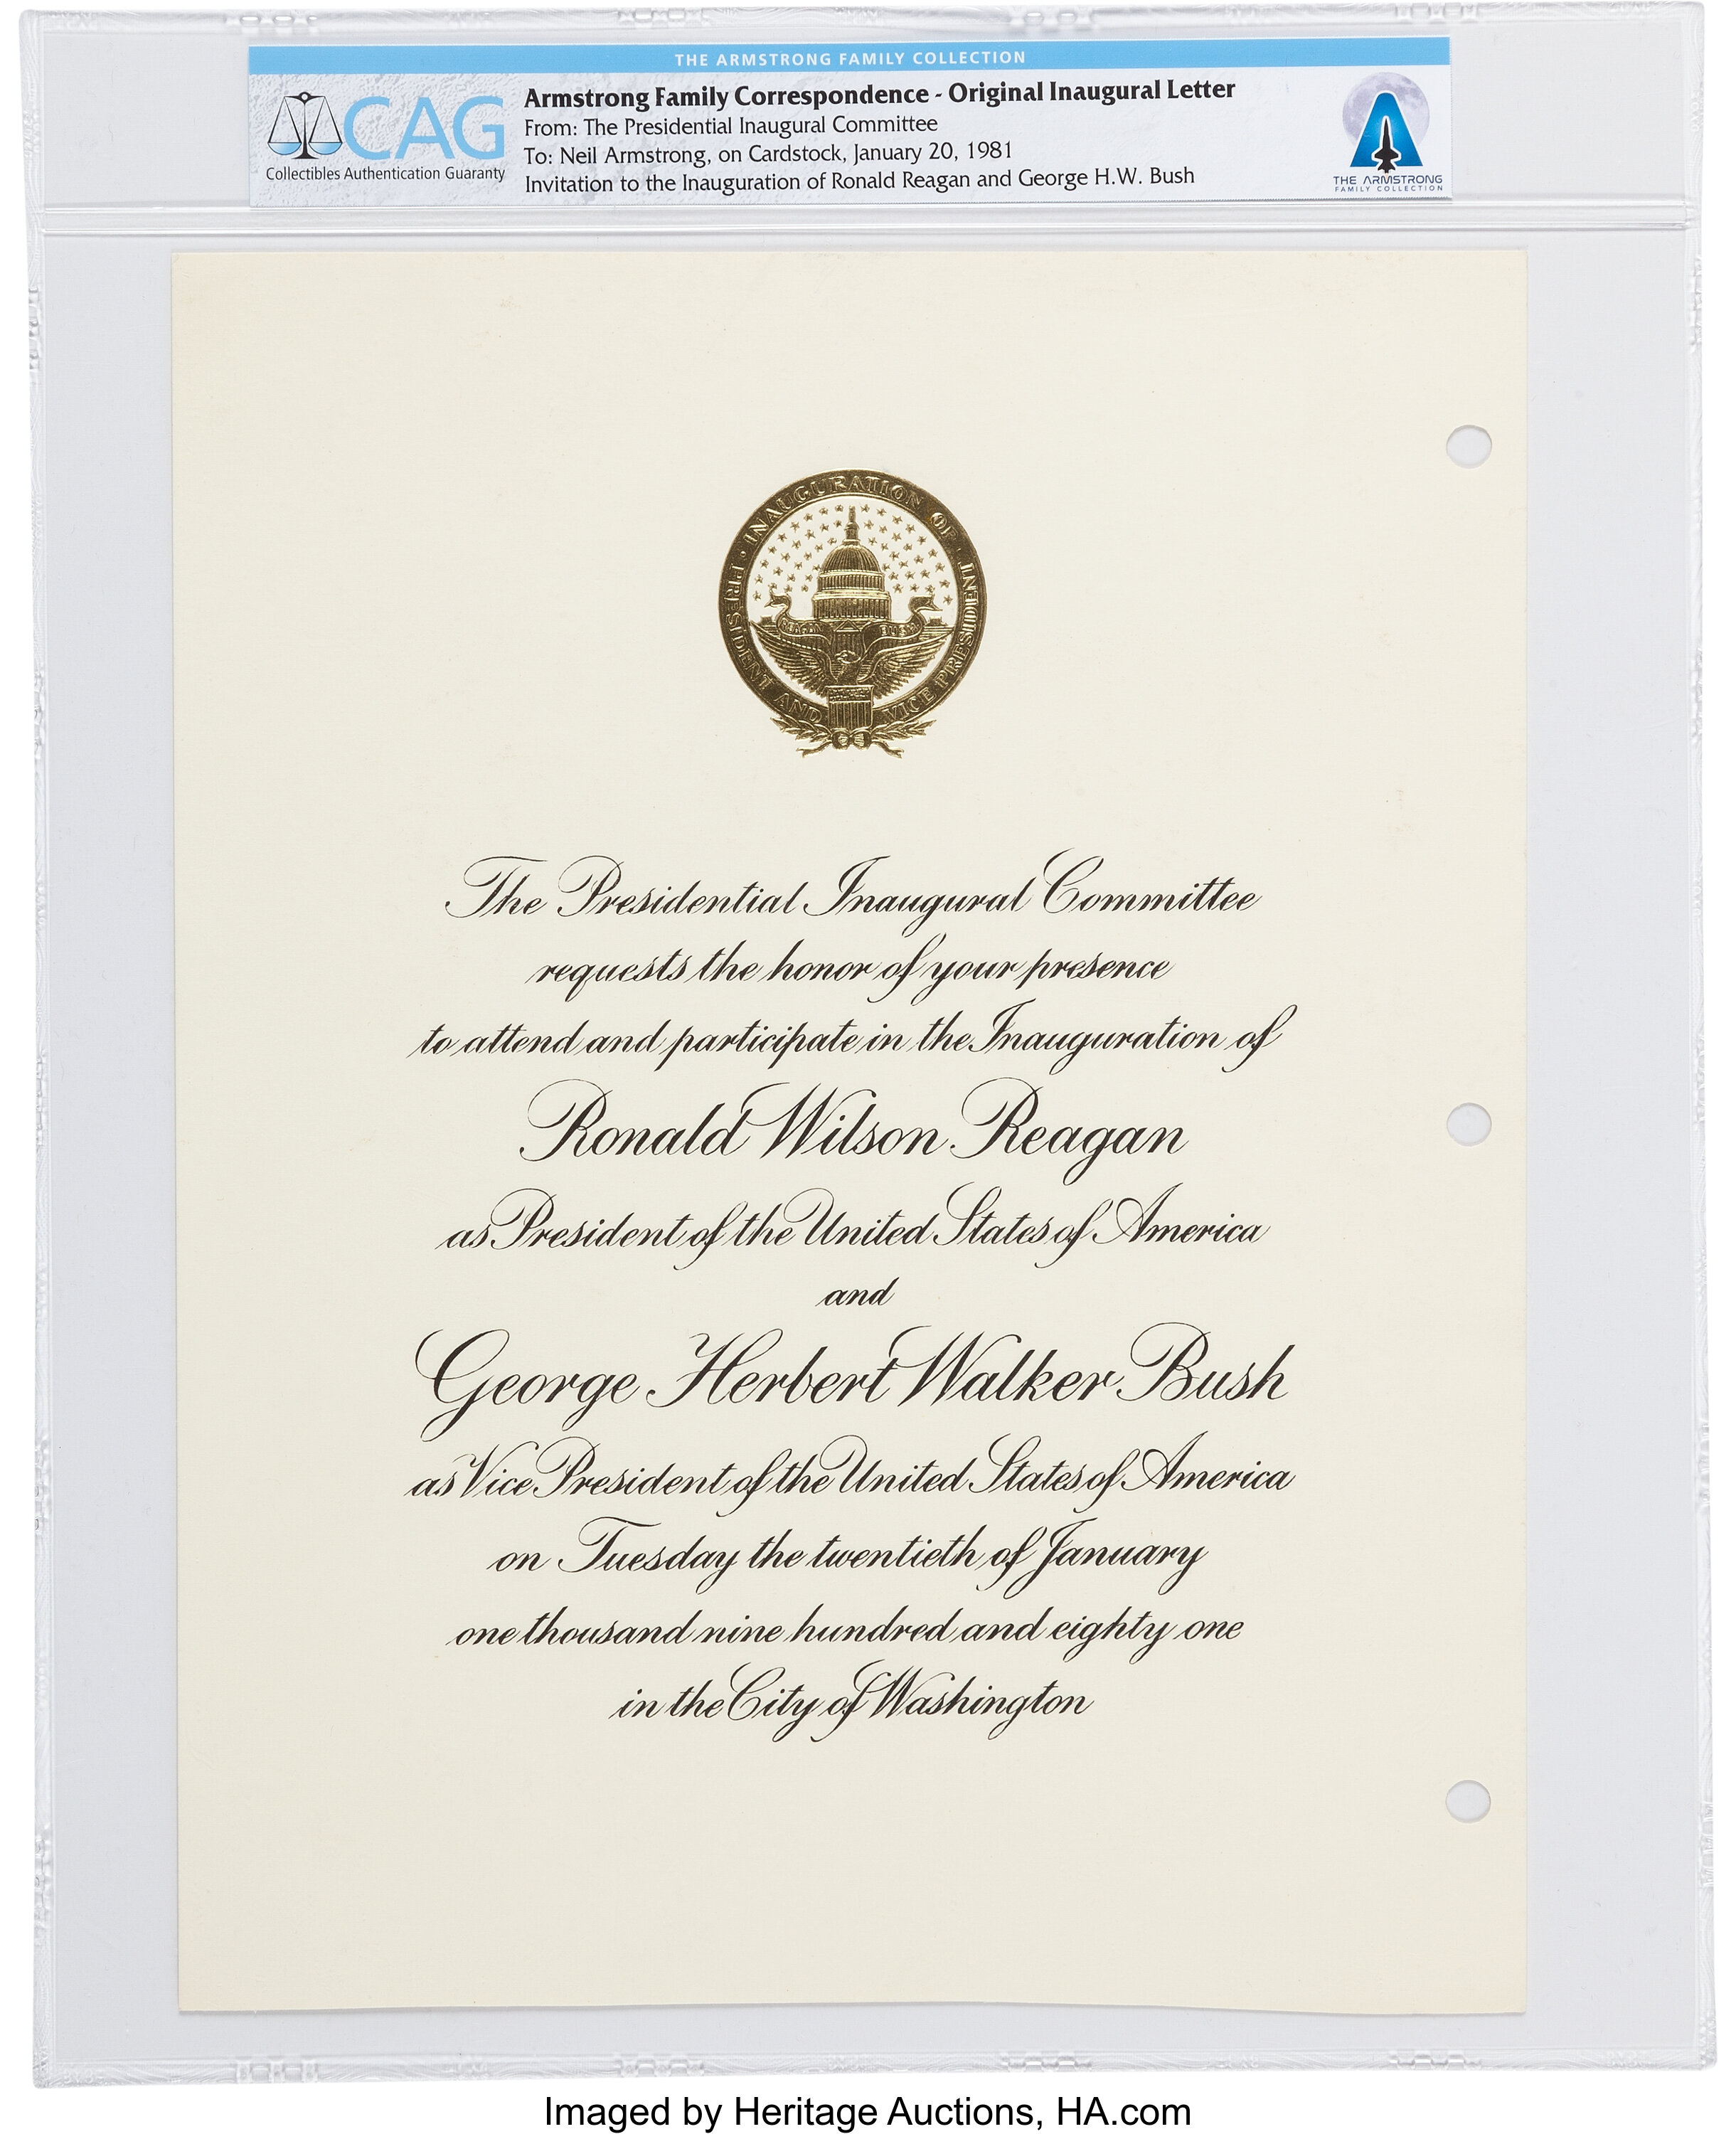 THE ARMSTRONG FAMILY COLLECTION
CAG
Collectibles Authentication Guaranty
Armstrong Family Correspondence - Original Inaugural Letter
From: The Presidential Inaugural Committee
To: Neil Armstrong, on Cardstock, January 20, 1981
Invitation to the Inauguration of Ronald Reagan and George H.W. Bush
THE ARMSTRONG
FAMILY COLLECTION
INAUGURATION OF
PRESIDENT AND VICE PRESIDENT
REAGAN BUSH
The Presidential Inaugural Committee
requests the honor of your presence
to attend and participate in the Inauguration of
Ronald Wilson Reagan
as President of the United States of America
and
George Herbert Walker Bush
as Vice President of the United States of America
on Tuesday the twentieth of January
one thousand nine hundred and eighty one
in the City of Washington
Imaged by Heritage Auctions, HA.com